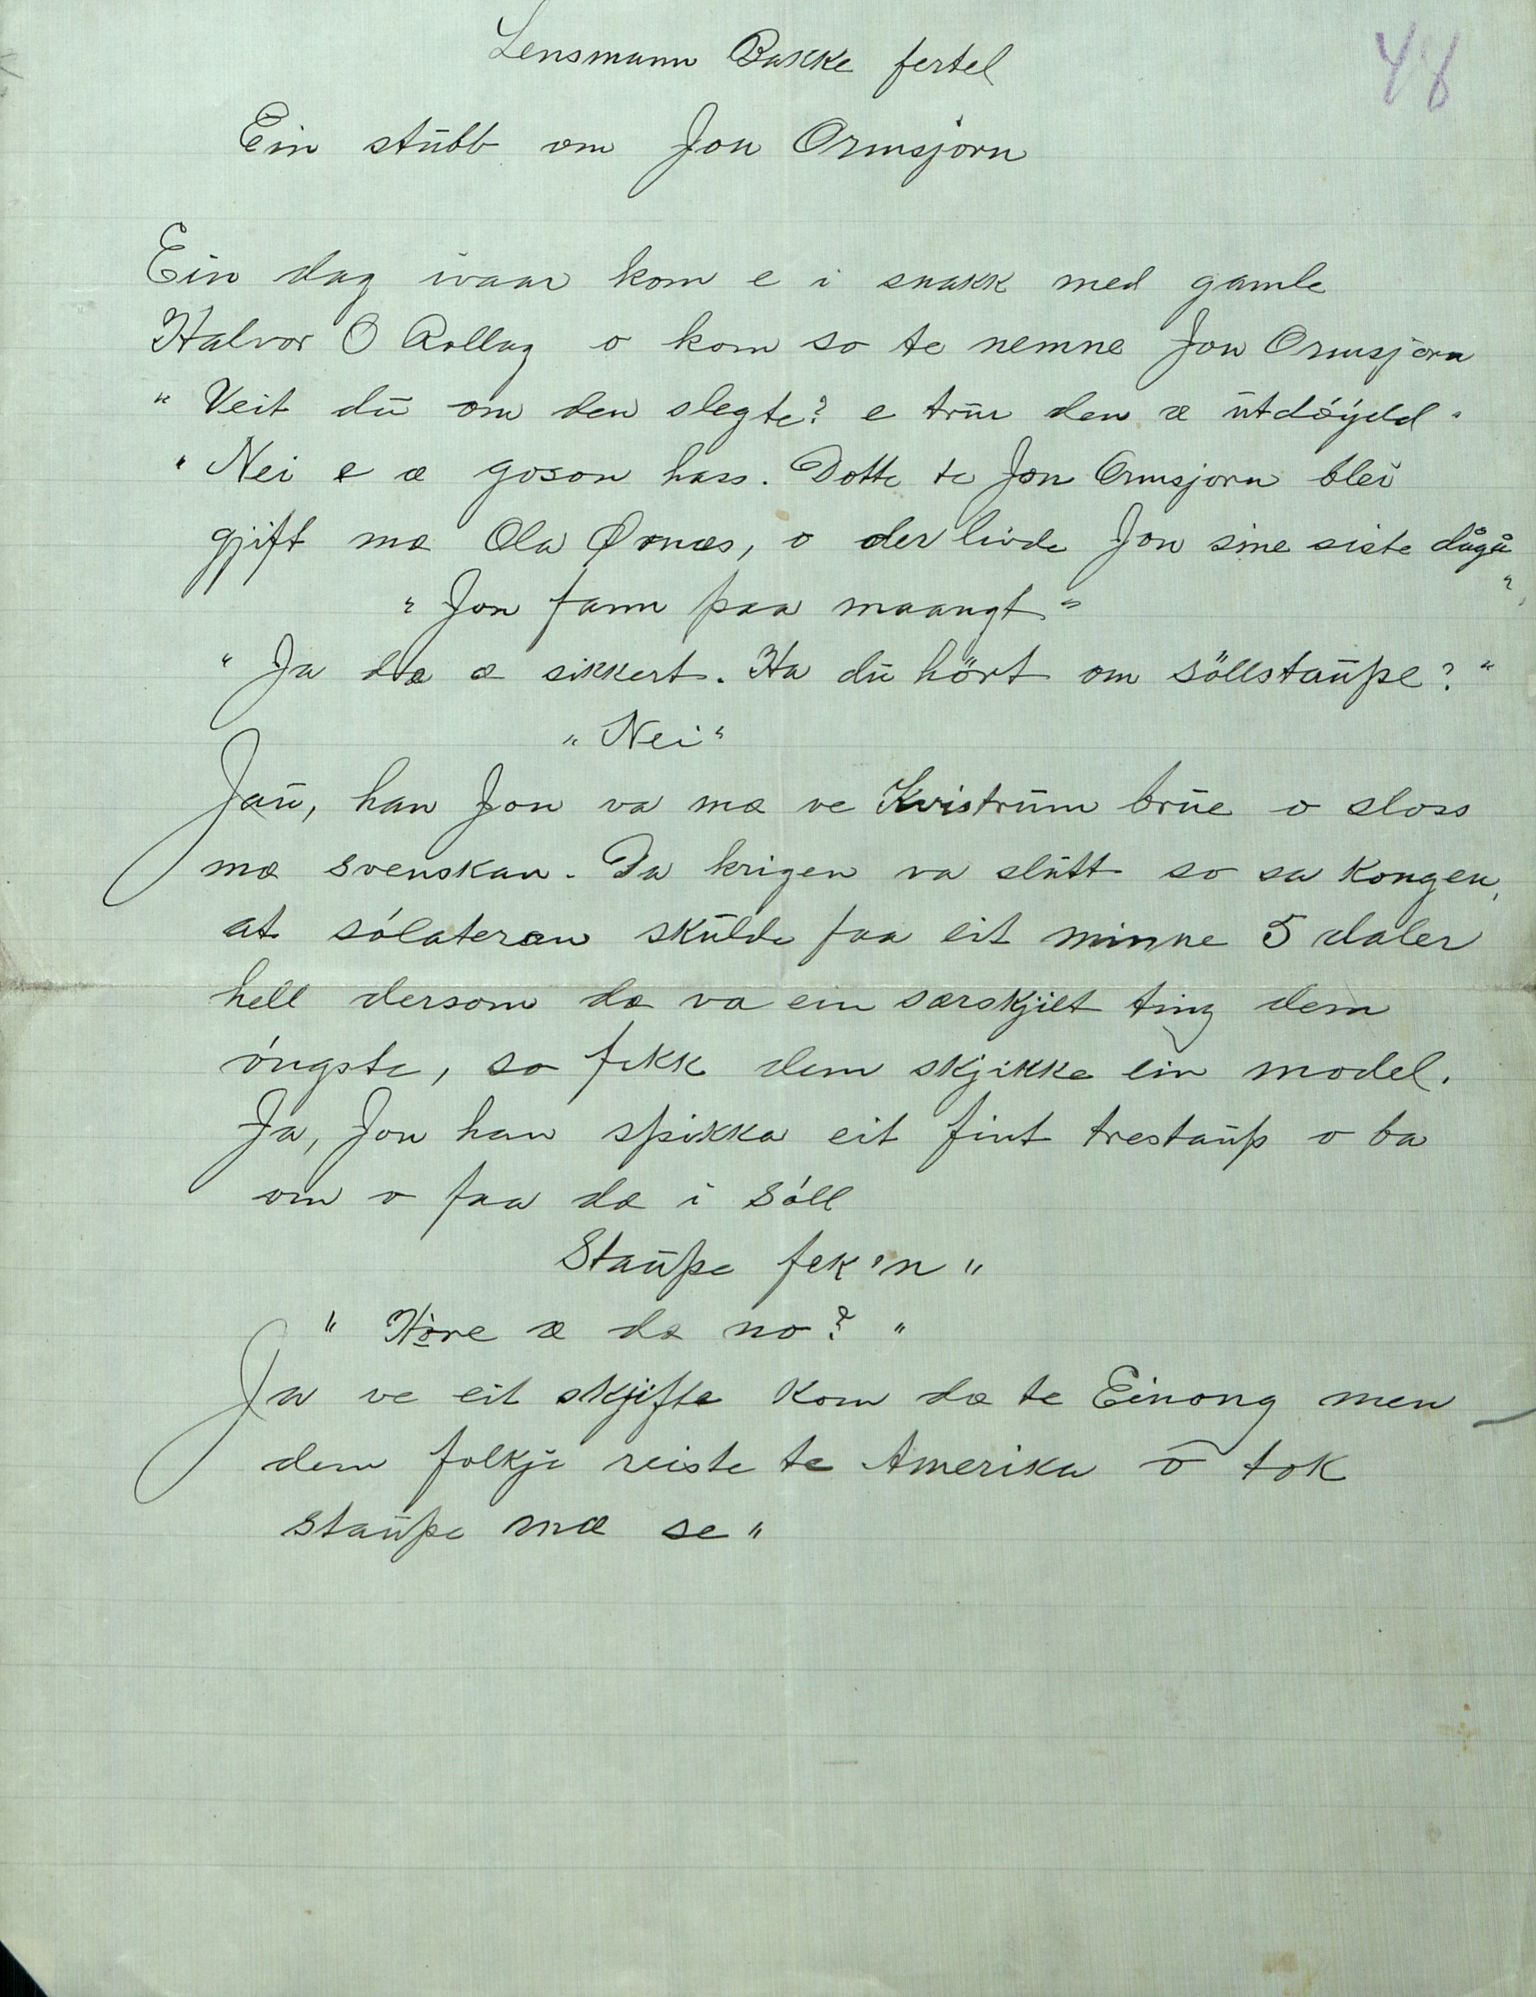 Lensmann Bakke fertel
48
Ein stubb om Jon Ormsjorn
Ein dag ivaar kom e i snakk med gamle
Halvor O Rollag o kom so te nemne Jon Ormsjorn
"Veit du om den slegte? e trur den æ utdöydd"
"Nei e æ goson hass. Dotte te Jon Ormsjorn blei
gjift mæ Ola Ørnæs, o der livde Jon sine siste dågå"
"Jon fann paa maangt"
"Ja dæ æ sikkert. Ha du hört om söllstaupe?"
"Nei"
Jau, han Jon va mæ ve Kvistrum brue o sloss
mæ svenskan. Da krigen va slutt so sa kongen,
at sólateran skulde faa eit minne 5 daler
hell dersom dæ va ein særskjilt ting dem
óngste, so fekk dem skjikke ein model.
Ja, Jon han spikka eit fint trestaup o ba
om o faa dæ i sóll
Staupe fek'n"
"Hòre æ dæ no?"
Ja ve eit skjifte kom dæ te Einong men
dem folkji reiste te Amerika o tok
staupe mæ se"